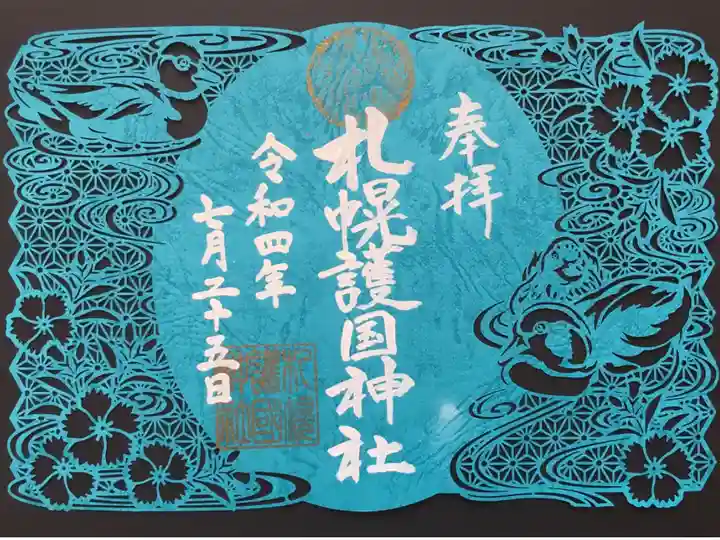 奉拝
札幌護国神社
令和四年
七月二十五日